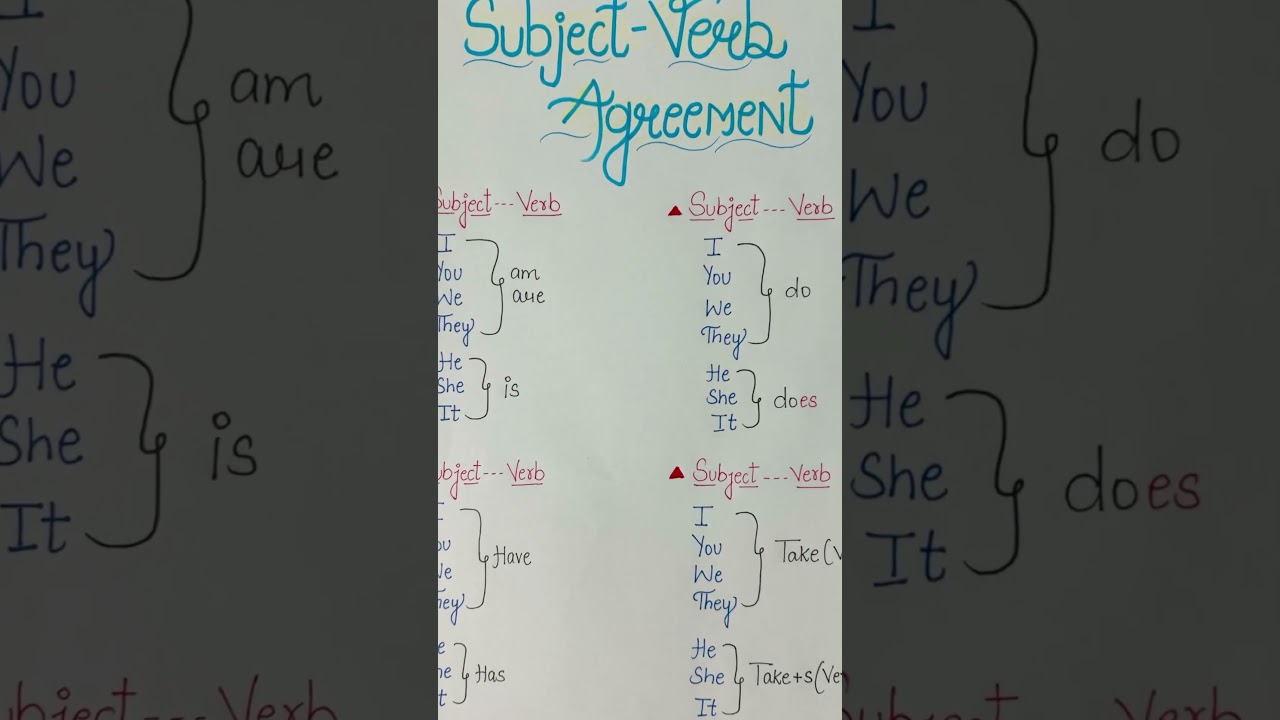 Subject-Verb
Agreement
Subject---Verb
I
You
We
They
am
are
He
She
It
is
▲ Subject---Verb
I
You
We
They
do
He
She
It
does
Verb
They
Have
Has
▲ Subject---Verb
I
You
We
They
Take(V
He
She
It
Take+s(Ve
I
You
We
They
am
are
He
She
It
is
Verb
I
You
We
They
do
He
She
It
does
Verb